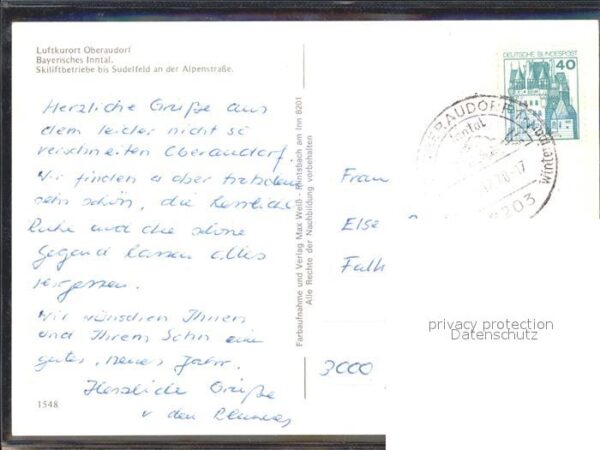 Luftkurort Oberaudorf
Bayerisches Inntal.
Skiliftbetriebe bis Sudelfeld an der Alpenstraße.
Herzliche Grüße aus
dem leider nicht so
verschneiten Oberaudorf.
Wir finden es aber trotzdem
sehr schön, die herrliche
Ruhe und die schöne
Gegend lassen alles
vergessen.
Wir wünschen Ihnen
und Ihrem Sohn ein
gutes, neues Jahr.
Herzliche Grüße
v den
1548
Farbaufnahme und Verlag Max Weiß - Flintsbach am Inn 8201
Alle Rechte der Nachbildung vorbehalten
DEUTSCHE BUNDESPOST
40
OBERAUDORF
8203
Frau
Else
Falk
3000
privacy protection
Datenschutz